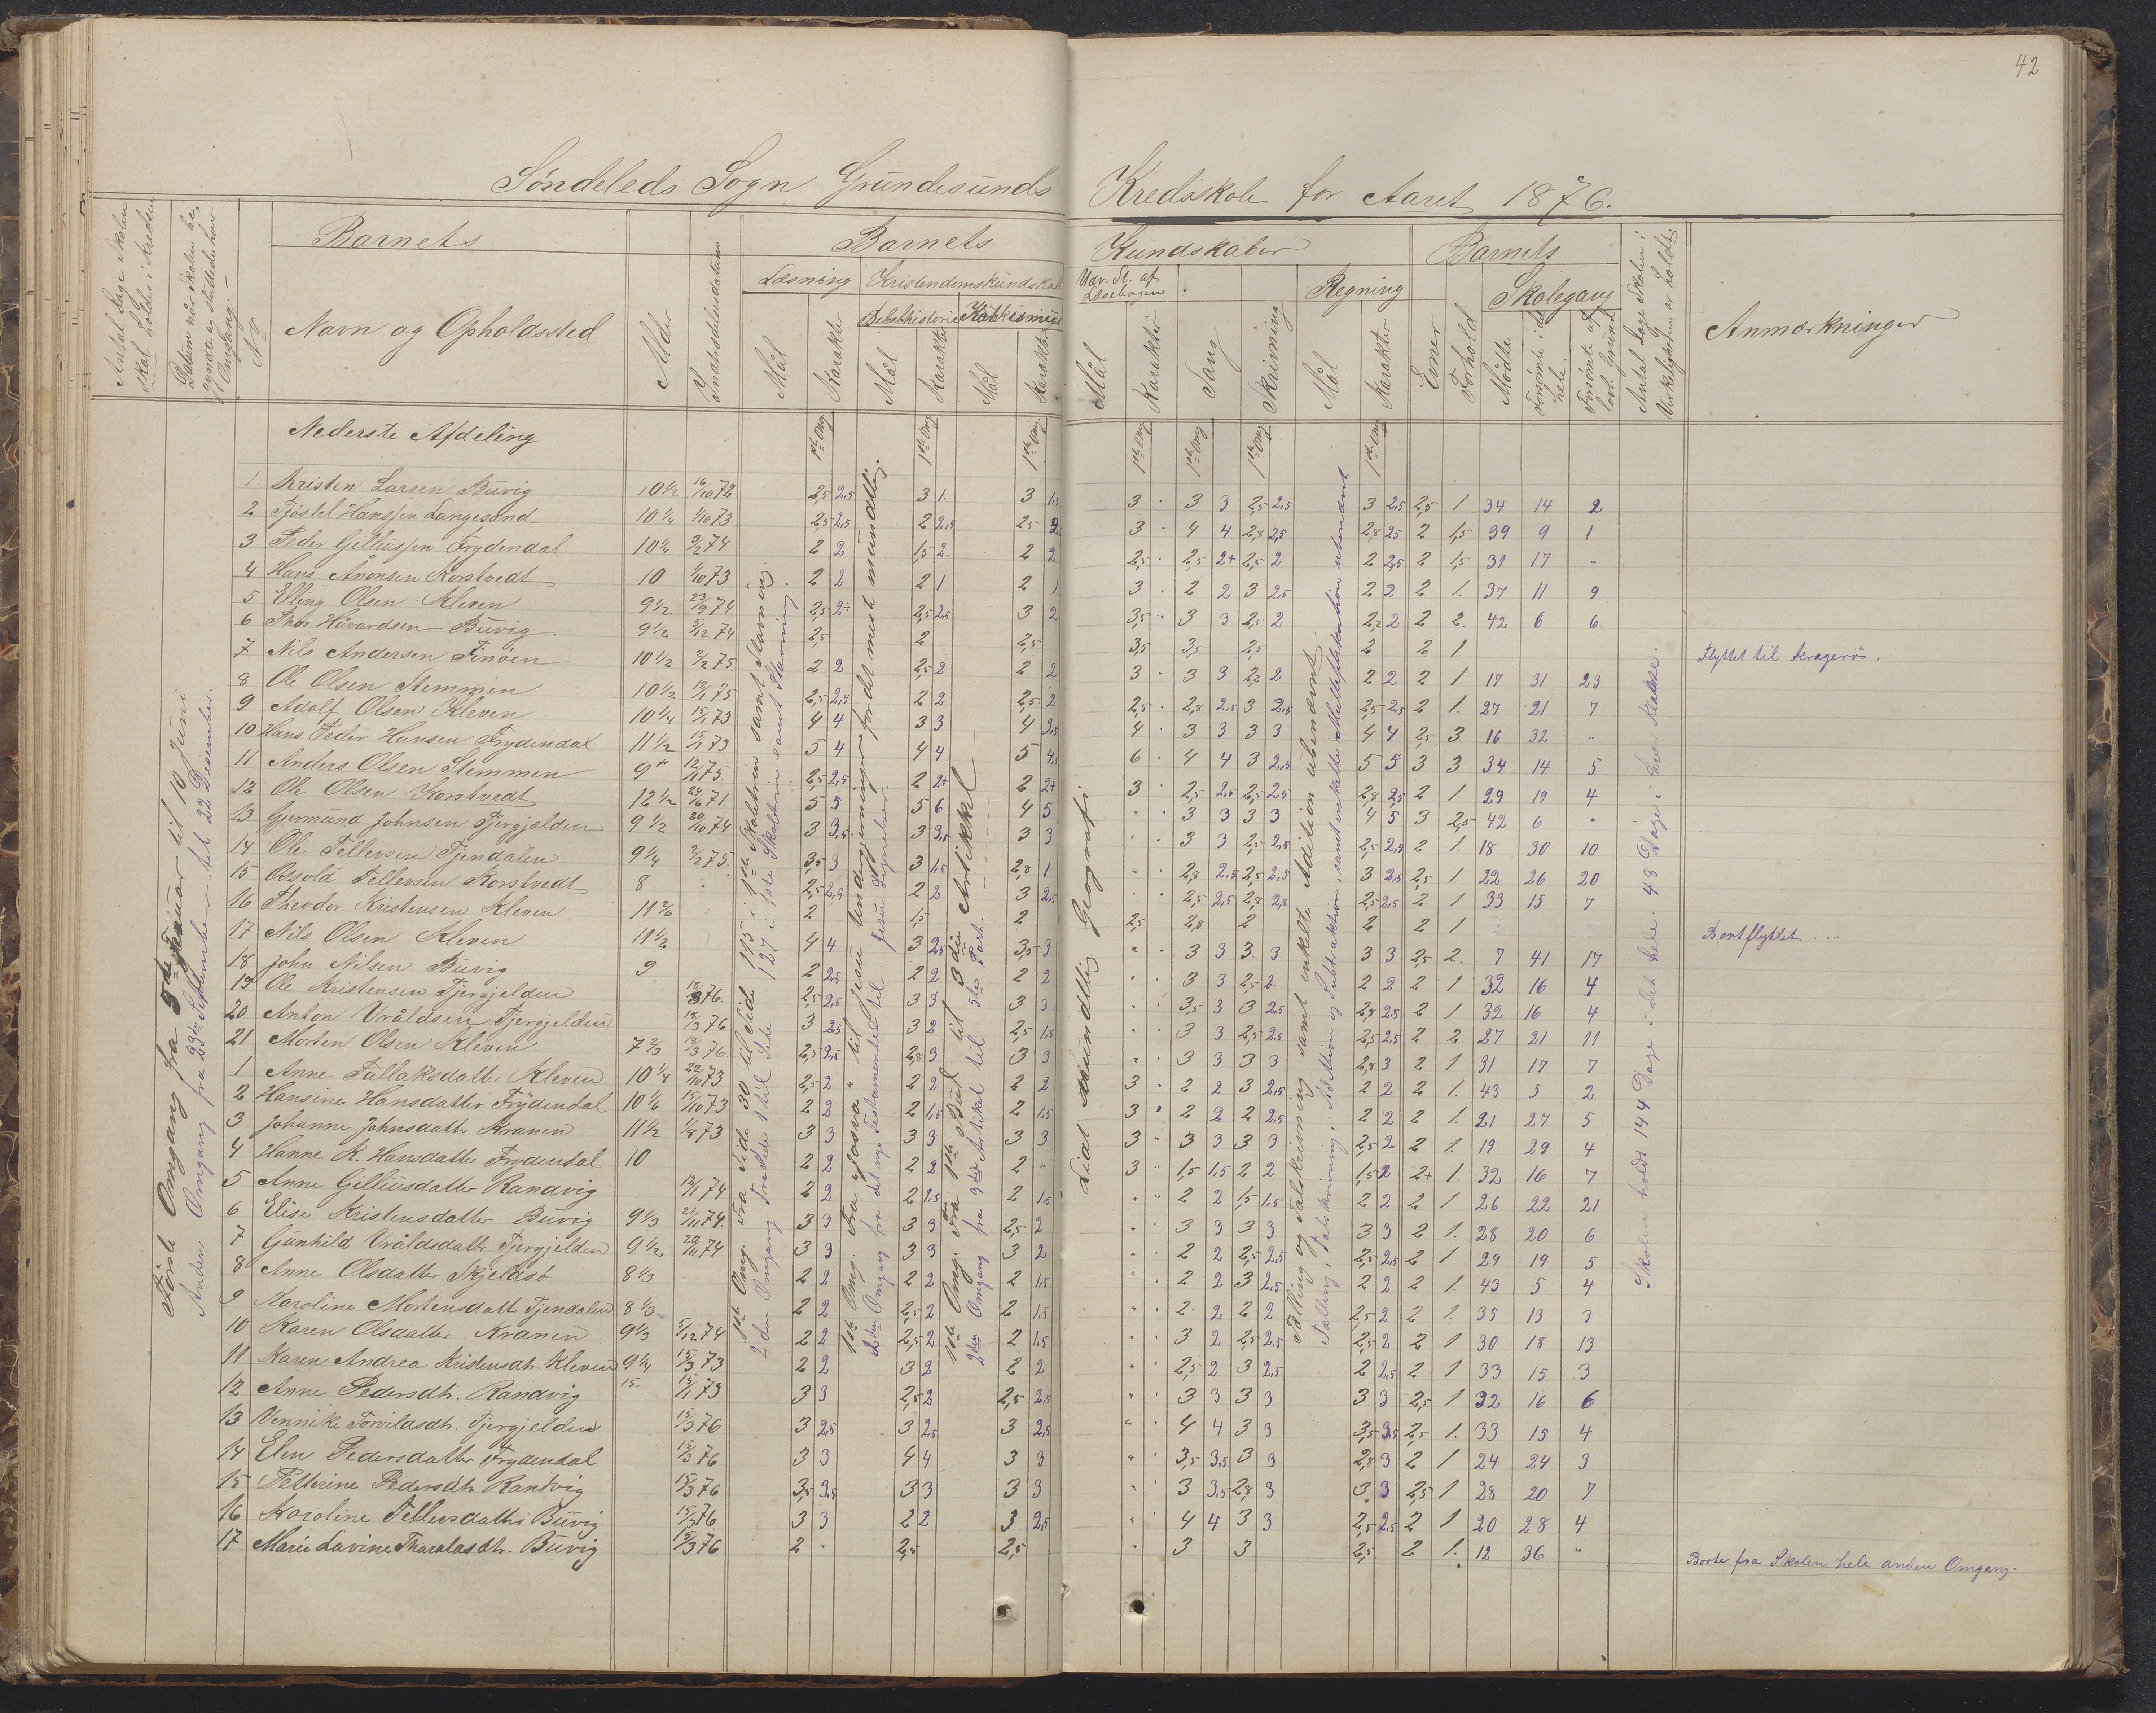 42
Söndeleds Sogn Grundesunds Kredsskole for Aaret 1876.
Antal Dage Skolen skal holdes i Kredsen
Datum når Skolen begyndte og sluttede hver Omgang.
No
Barnets
Navn og Opholdssted
Alder
Indtrædelsesdatum
Barnets Kundskaber
Læsning
Mål
Karakter
Kristendomskundskab
Bibelhistorie
Mål
Karakter
Katekismus
Mål
Karakter
Udv. St. af Læsebogen
Mål
Karakter
Sang
Skrivning
Regning
Mål
Karakter
Evner
Forhold
Barnets
Skolegang
Mödte
Forsömte i det hele
Forsömte af lovl. Grund
Antal Dage Skolen i Virkeligheden er holdt
Anmærkninger
Nederste Afdeling
1ste Omg 1ste Omg 1ste Omg 1ste Omg 1ste Omg 1ste Omg 1ste Omg
Förste Omgang fra 5de Januar til 10 Juni
Anden Omgang fra 23de September til 22 Desember.
1ste Omg. Fra Side 30 til Side 115 i 1ste Skoletrin samt Stavning.
2den Omgang Fra Side 1 til Side 127 i 1ste Skoletrin samt Stavning
1ste Omg. Fra Josva til Jesu Undergjerninger fordt mest mundtlig.
2den Omgang fra det nye Testamentet til Jesu Lignelser.
1ste Omg. Fra 1ste Bud til 3die Artikkel
2den Omgang fra 3die Artikel til 5te Part.
Lidt mundtlig Geografi
Tælling og Talskrivning samt enkelte Adition ubenævnt
Tælling, Talskrivning, Addition og Subtraktion, samt enkelte Multiplikation ubenævnt
Skolen holdt 144 Dage i det hele. 48 Dage i hver Klasse.
1 Kristen Larsen Buvig 10½ 16/10 72 2,5 2,5 3 1. 3 1,5 3 3 3 2,5 2,5 3 2,5 2,5 1 34 14 2
2 Tjöstel Hanssen Langesand 10¼ 1/10 73 2,5 2,5 2 2,5 2,5 2 3 4 4 2,8 2,5 2,8 2,5 2 1,5 39 9 1
3 Peder Gilleussen Frydendal 10¼ 2/2 74 2 2 1,5 2 2 2 2,5 2,5 2+ 2,5 2 2 2,5 2 1,5 31 17 "
4 Hans Ånonsen Korstvedt 10 1/10 73 2 2 2 1 2 1 3 2 2 3 2,5 2 2 2 1. 37 11 9
5 Elling Olsen Kleven 9½ 23/9 74 2,5 2 2,5 2,5 3 2 3,5 3 3 2,5 2 2,2 2 2 2 42 6 6
6 Thor Håvardsen Buvig 9½ 5/12 74 2,5 2 2,5 3,5 3,5 2,5 2 2 1 Flyttet til Kragerö.
7 Nils Andersen Finöen 10½ 2/2 75 2 2 2,5 2 2 2 3 3 3 2,2 2 2 2 2 1. 17 31 23
8 Ole Olsen Stemmen 10½ 12/1 75 2,5 2,5 2 2 2,5 2 2,5 2,8 2,5 3 2,5 2,5 2,5 2 1. 27 21 7
9 Adolf Olsen Kleven 10¼ 15/1 73 4 4 3 3 4 3,5 4 3 3 3 3 4 4 2,5 3. 16 32 "
10 Hans Peder Hansen Frydendal 11½ 15/1 73 5 4 4 4 5 4,5 6 4 4 3 2,5 5 5 3 3 34 14 5
11 Anders Olsen Stemmen 9+ 12/11 75. 2,5 2,5 2 2+ 2 2+ 3 2,5 2,5 2,5 2,5 2,8 2,5 2 1 29 19 4
12 Ole Olsen Korstvedt 12½ 24/6 71. 5 5 5 6 4 5 " 3 3 3 3 4 5 3 2,5 42 6 "
13 Gjermund Johnsen Tjergjelden 9½ 20/10 74 3 3,5 3 3,5 3 3 " 3 3 2,5 2,5 2,5 2,5 2 1. 18 30 10
14 Ole Tellevsen Tjendalen 9¼ 2/2 75. 3,5 3 3 1,5 2,8 1 " 2,8 2,5 2,5 2,5 3 2,5 2,5 1. 22 26 20
15 Osvold Tellevsen Korstvedt 8 2,5 2,5 2 2 3 2,5 2,5 2,5 2,8 2,8 2,5 2,5 2 1 33 15 7
16 Theodor Kristensen Kleven 11 2/6 2 1,5 2 2,5 2,8 2 2 2 1 Bortflyttet
17 Nils Olsen Kleven 11½ 4 4 3 2,5 3,5 3 " 3 3 3 3 3 3 2,5 2. 7 41 17
18 John Nilsen Buvig 9 2 2,5 2 2 2 2 " 3 3 2,5 2 2 2 2 1 32 16 4
19 Ole Kristensen Tjergjelden 15/3 76. 2,5 2,5 3 3 3 3 " 3,5 3 3 2,5 2,8 2,5 2 1 32 16 4
20 Anton Vråldsen Tjergjelden 15/3 76 3 2,5 3 2 2,5 1,5 " 3 3 2,5 2,5 2,5 2,5 2 2. 27 21 11
21 Morten Olsen Kleven 7 2/3 15/3 76. 2,5 2,5 2,8 3 3 3 " 3 3 3 3 2,8 3 2 1 31 17 7
1 Anne Tallaksdatter Kleven 10¼ 22/10 73 2,5 2 2 2 2 2 3 2 2 3 2,5 2 2 2 1. 43 5 2
2 Hansine Hansdatter Frydendal 10 1/6 15/10 73 2 2 2 1,5 2 1,5 3 2 2 2 2,5 2 2 2 1. 21 27 5
3 Johanne Johnsdatter Kranen 11½ 1/8 73 3 3 3 3 3 3 3 3 3 3 3 2,5 2 2 1. 19 29 4
4 Hanne K. Hansdatter Frydendal 10 2 2 2 2 2 " 3 1,5 1,5 2 2 1,5 2 2+ 1. 32 16 7
5 Anne Gilleusdatter Randvig 12/1 74 2 2 2 1,5 2 1,5 " 2 2 1,5 1,5 2 2 2 1 26 22 21
6 Elise Kristensdatter Buvig 9⅓ 21/11 74. 3 3 3 3 2,5 2 " 3 3 3 3 3 3 2 1. 28 20 6
7 Gunhild Vråldsdatter Tjergjelden 9½ 20/11 74 3 3 3 3 3 2 " 2 2 2,5 2,5 2,5 2,5 2 1 29 19 5
8 Anne Olsdatter Skjeldsö 8⅓ 2 2 2 2 2 1,5 " 2 2 3 2,5 2 2 2 1. 43 5 4
9 Karoline Mortensdatter Tjendalen 8⅓ 2 2 2,5 2 2 1,5 " 2 2 2 2 2,5 2 2 1. 35 13 3
10 Karen Olsdatter Kranen 9⅓ 5/12 74 2 2 2,5 2 2 1,5 " 3 2 2,5 2,5 2,5 2 2 1 30 18 13
11 Karen Andrea Kristensdtr. Kleven 9¼ 15/3 73 2 2 3 2 2 2 " 2,5 2 3 2,5 2 2,5 2 1 33 15 3
12 Anne Pedersdtr. Randvig 15. 15/1 73 3 3 2,5 2 2,5 2,5 " 3 3 3 3 3 3 2,5 1 32 16 6
13 Vennike Torvilasdtr. Tjergjelden 15/3 76 3 2,5 3 2,5 3 2,5 " 4 4 3 3 3,5 3,5 2,5 1. 33 15 4
14 Elen Pedersdatter Frydendal 15/3 76 3 3 4 4 3 3 " 3,5 3,5 3 3 2,8 3 2 1 24 24 3
15 Petterine Pedersdtr. Randvig 15/3 76 3,5 3,5 3 3 3 3 " 3 3,5 2,8 3 3 3 2,5 1 28 20 7
16 Karoline Tellevsdatter Buvig 15/3 76 3 3 2 2 3 2,5 " 4 4 3 3 2,5 2,5 2 1 20 28 4
17 Marie Lavine Tharalasdtr. Buvig 15/3 76 2 " 2,5 2,5 " 3 3 2,5 2 1. 12 36 " Borte fra Skolen hele anden Omgang.